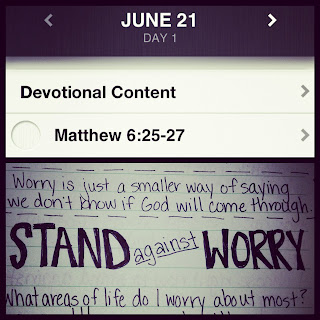 JUNE 21
DAY 1
Devotional Content
Matthew 6:25-27
Worry is just a smaller way of saying
we don't know if God will come through.
STAND against WORRY
What areas of life do I worry about most?